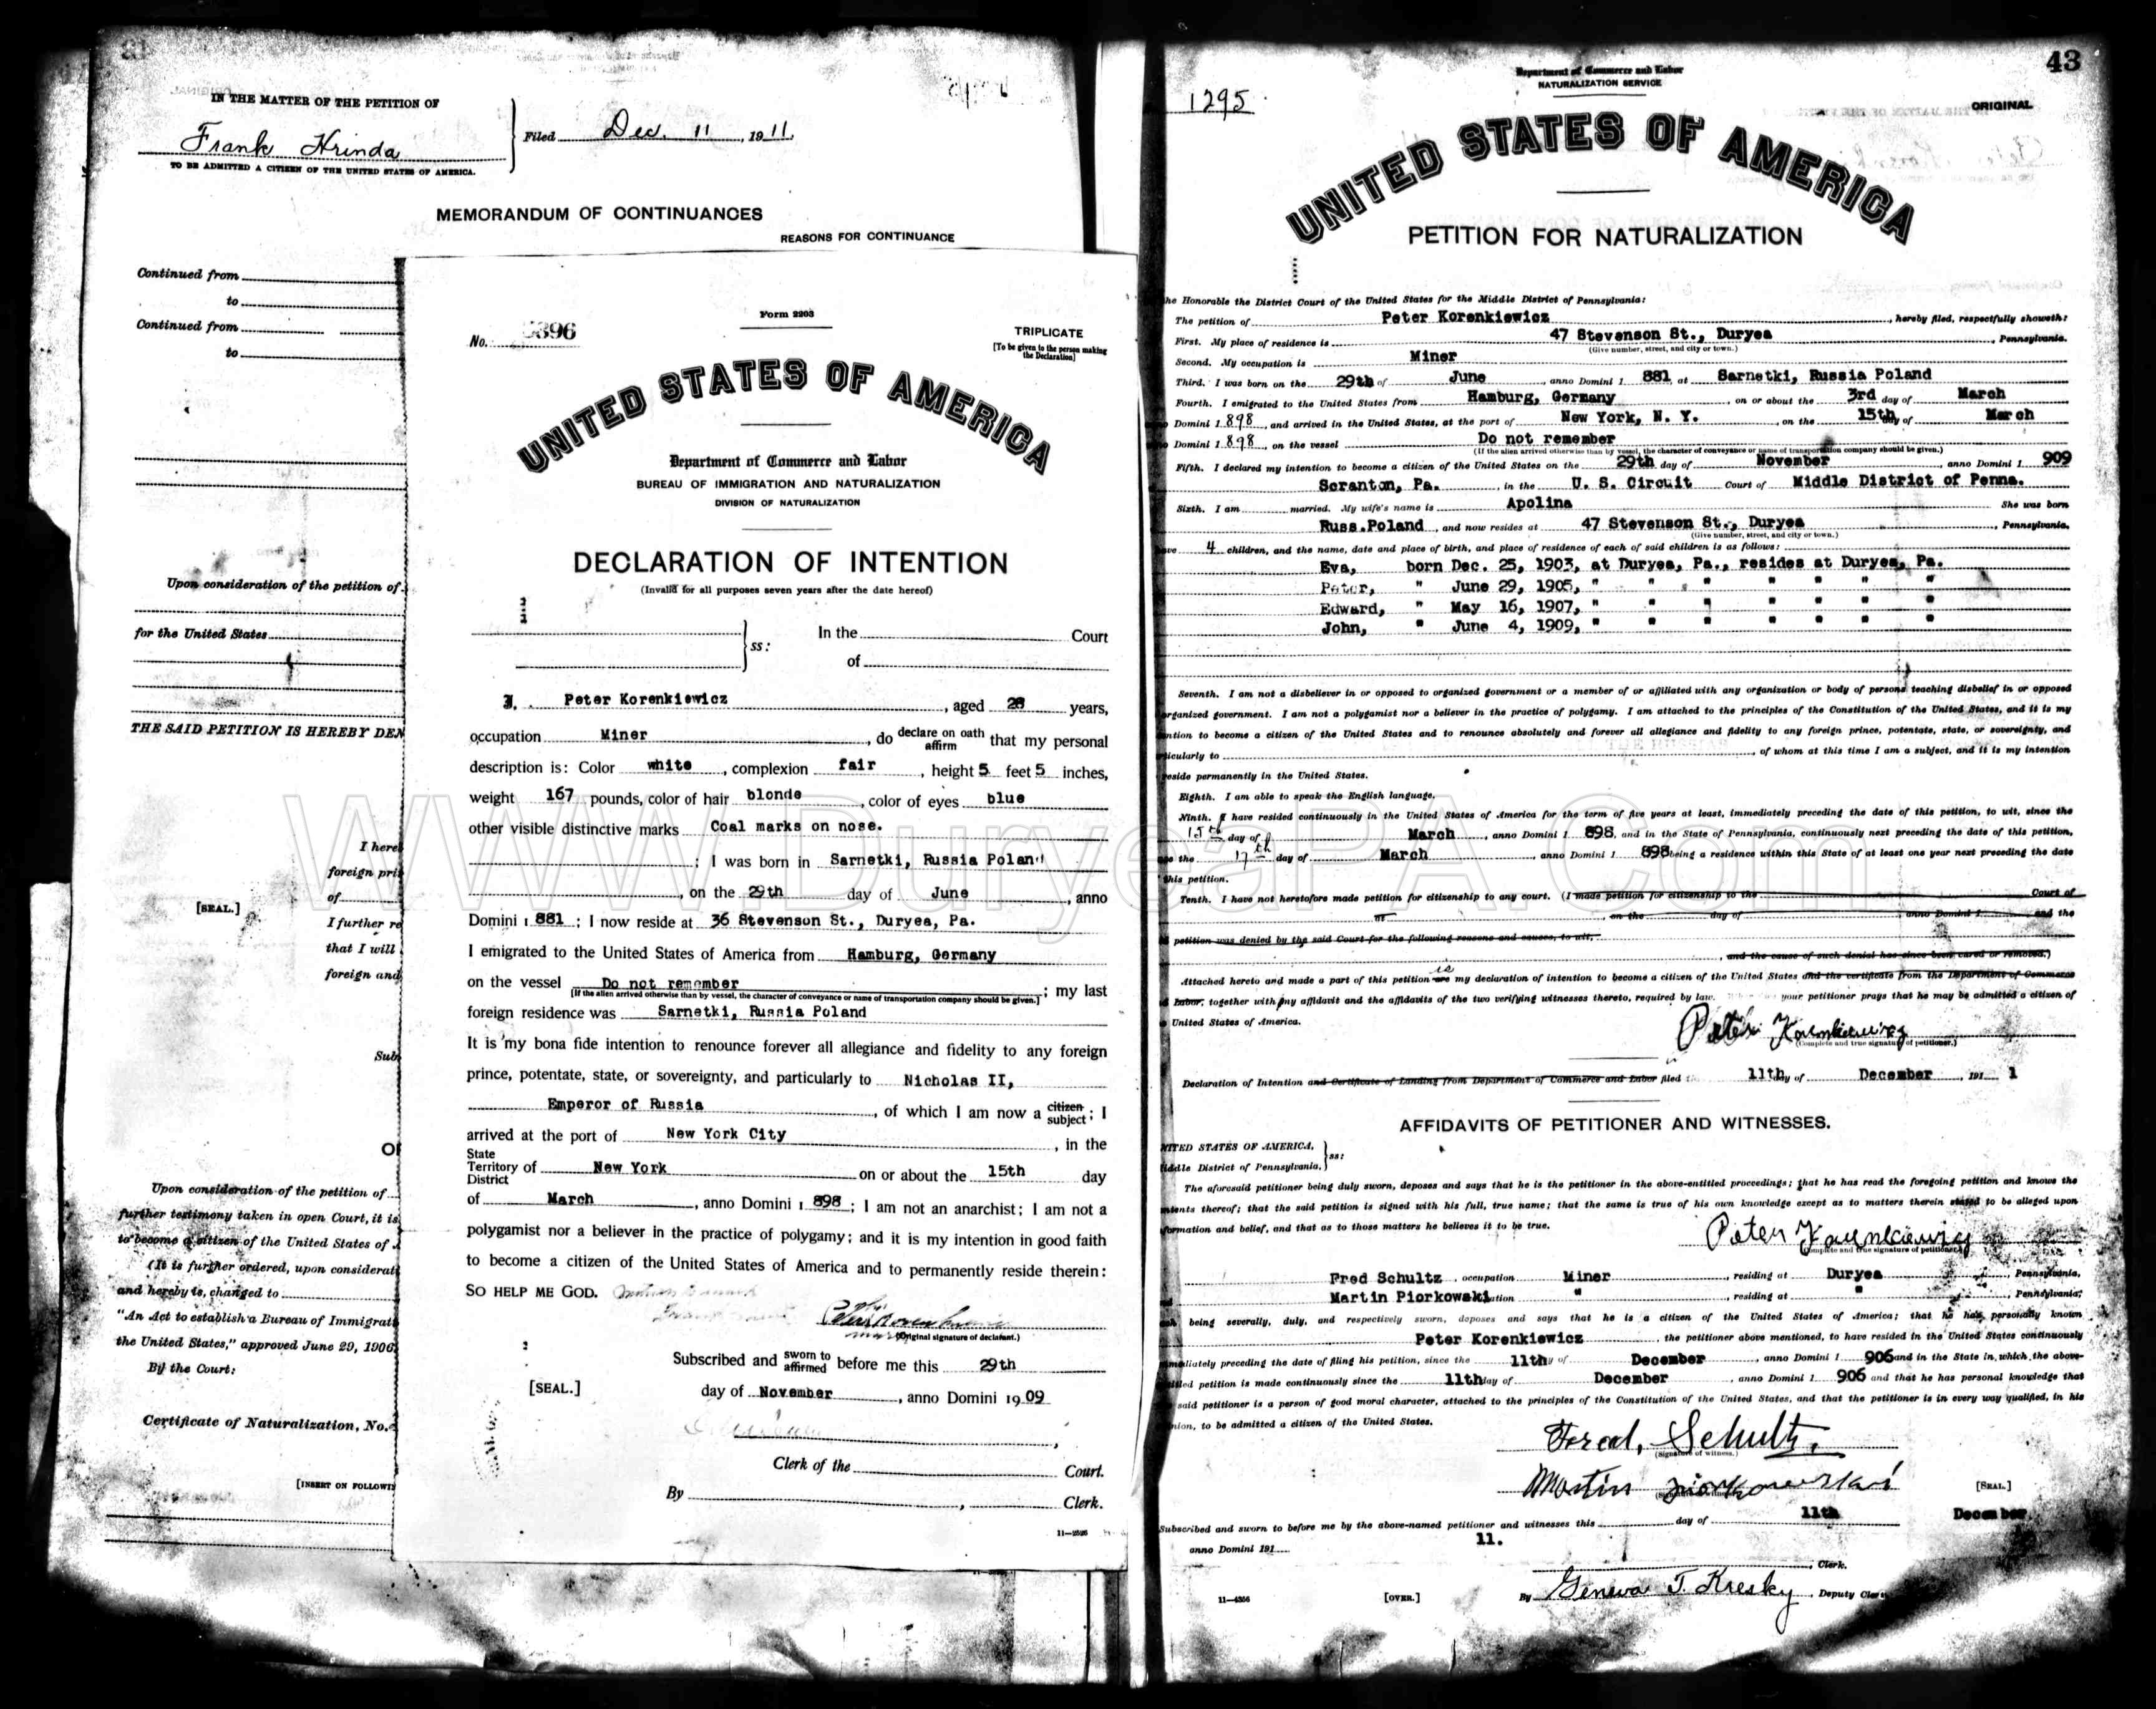 IN THE MATTER OF THE PETITION OF
Frank Hrinda
TO BE ADMITTED A CITIZEN OF THE UNITED STATES OF AMERICA.
Filed Dec. 11, 1911.
MEMORANDUM OF CONTINUANCES
REASONS FOR CONTINUANCE
Continued from
to
Continued from
to
Upon consideration of the petition of
for the United States
THE SAID PETITION IS HEREBY DEN
I here
foreign pri
of
[SEAL.]
I further re
that I will
foreign and
Sub
Upon consideration of the petition of
further testimony taken in open Court, it is
to become a citizen of the United States of
(It is further ordered, upon considerat
and hereby is, changed to
"An Act to establish a Bureau of Immigrat
the United States," approved June 29, 1906
By the Court:
Certificate of Naturalization, No.
[INSERT ON FOLLOWI
Form 2203
No. 396
TRIPLICATE
[To be given to the person making
the Declaration]
UNITED STATES OF AMERICA
Department of Commerce and Labor
BUREAU OF IMMIGRATION AND NATURALIZATION
DIVISION OF NATURALIZATION
DECLARATION OF INTENTION
(Invalid for all purposes seven years after the date hereof)
ss:
In the Court
of
I, Peter Korenkiewicz, aged 28 years,
occupation Miner, do declare on oath affirm that my personal
description is: Color white, complexion fair, height 5 feet 5 inches,
weight 167 pounds, color of hair blonde, color of eyes blue
other visible distinctive marks Coal marks on nose.
; I was born in Sarnetki, Russia Poland
, on the 29th day of June, anno
Domini 1 881; I now reside at 36 Stevenson St., Duryea, Pa.
I emigrated to the United States of America from Hamburg, Germany
on the vessel Do not remember; my last
(If the alien arrived otherwise than by vessel, the character of conveyance or name of transportation company should be given.)
foreign residence was Sarnetki, Russia Poland
It is my bona fide intention to renounce forever all allegiance and fidelity to any foreign
prince, potentate, state, or sovereignty, and particularly to Nicholas II,
Emperor of Russia, of which I am now a citizen subject; I
arrived at the port of New York City, in the
State
Territory of New York on or about the 15th day
District
of March, anno Domini 1 898; I am not an anarchist; I am not a
polygamist nor a believer in the practice of polygamy; and it is my intention in good faith
to become a citizen of the United States of America and to permanently reside therein:
SO HELP ME GOD.
(Original signature of declarant.)
Subscribed and sworn to affirmed before me this 29th
[SEAL.]
day of November, anno Domini 19 09
Clerk of the Court.
By , Clerk.
43
Department of Commerce and Labor
NATURALIZATION SERVICE
1295
ORIGINAL
UNITED STATES OF AMERICA
PETITION FOR NATURALIZATION
he Honorable the District Court of the United States for the Middle District of Pennsylvania:
The petition of Peter Korenkiewicz, hereby filed, respectfully showeth:
First. My place of residence is 47 Stevenson St., Duryea, Pennsylvania.
(Give number, street, and city or town.)
Second. My occupation is Miner
Third. I was born on the 29th of June, anno Domini 1 881 at Sarnetki, Russia Poland
Fourth. I emigrated to the United States from Hamburg, Germany, on or about the 3rd day of March
Domini 1 898, and arrived in the United States, at the port of New York, N. Y., on the 15th day of March
Domini 1 898, on the vessel Do not remember
(If the alien arrived otherwise than by vessel, the character of conveyance or name of transportation company should be given.)
Fifth. I declared my intention to become a citizen of the United States on the 29th day of November, anno Domini 1 909
Scranton, Pa., in the U. S. Circuit Court of Middle District of Penna.
Sixth. I am married. My wife's name is Apolina She was born
Russ.Poland, and now resides at 47 Stevenson St., Duryea, Pennsylvania.
(Give number, street, and city or town.)
ave 4 children, and the name, date and place of birth, and place of residence of each of said children is as follows:
Eva, born Dec. 25, 1903, at Duryea, Pa., resides at Duryea, Pa.
Peter, " June 29, 1905, " " " " " " "
Edward, " May 16, 1907, " " " " " " "
John, " June 4, 1909, " " " " " " "
Seventh. I am not a disbeliever in or opposed to organized government or a member of or affiliated with any organization or body of persons teaching disbelief in or opposed
organized government. I am not a polygamist nor a believer in the practice of polygamy. I am attached to the principles of the Constitution of the United States, and it is my
ntion to become a citizen of the United States and to renounce absolutely and forever all allegiance and fidelity to any foreign prince, potentate, state, or sovereignty, and
icularly to , of whom at this time I am a subject, and it is my intention
reside permanently in the United States.
Eighth. I am able to speak the English language.
Ninth. I have resided continuously in the United States of America for the term of five years at least, immediately preceding the date of this petition, to wit, since the
15th day of March, anno Domini 1 898, and in the State of Pennsylvania, continuously next preceding the date of this petition,
the 17th day of March, anno Domini 1 898 being a residence within this State of at least one year next preceding the date
this petition.
Tenth. I have not heretofore made petition for citizenship to any court. (I made petition for citizenship to the Court of
at , on the day of , anno Domini 1 and the
petition was denied by the said Court for the following reasons and causes, to wit,
, and the cause of such denial has since been cured or removed.)
Attached hereto and made a part of this petition are is my declaration of intention to become a citizen of the United States and the certificate from the Department of Commerce
Labor, together with my affidavit and the affidavits of the two verifying witnesses thereto, required by law. your petitioner prays that he may be admitted a citizen of
United States of America.
Peter Korenkiewicz
(Complete and true signature of petitioner.)
Declaration of Intention and Certificate of Landing from Department of Commerce and Labor filed 11th day of December, 191 1
AFFIDAVITS OF PETITIONER AND WITNESSES.
NITED STATES OF AMERICA,
iddle District of Pennsylvania, ss:
The aforesaid petitioner being duly sworn, deposes and says that he is the petitioner in the above-entitled proceedings; that he has read the foregoing petition and knows the
ntents thereof; that the said petition is signed with his full, true name; that the same is true of his own knowledge except as to matters therein stated to be alleged upon
formation and belief, and that as to those matters he believes it to be true.
Peter Korenkiewicz
(Complete and true signature of petitioner.)
Fred Schultz, occupation Miner, residing at Duryea, Pennsylvania,
Martin Piorkowski ation ", residing at ", Pennsylvania;
being severally, duly, and respectively sworn, deposes and says that he is a citizen of the United States of America; that he has personally known
Peter Korenkiewicz, the petitioner above mentioned, to have resided in the United States continuously
mediately preceding the date of filing his petition, since the 11th y of December, anno Domini 1 906 and in the State in which the above-
titled petition is made continuously since the 11th day of December, anno Domini 1 906 and that he has personal knowledge that
said petitioner is a person of good moral character, attached to the principles of the Constitution of the United States, and that the petitioner is in every way qualified, in his
nion, to be admitted a citizen of the United States.
Fred, Schultz.
(Signature of witness.)
Martin Piorkowski
(Signature of witness.)
[SEAL.]
Subscribed and sworn to before me by the above-named petitioner and witnesses this 11th day of December
anno Domini 191 11.
, Clerk.
11—4356
[OVER.]
By Geneva T. Kresky, Deputy Clerk
www.DuryeaPA.Com